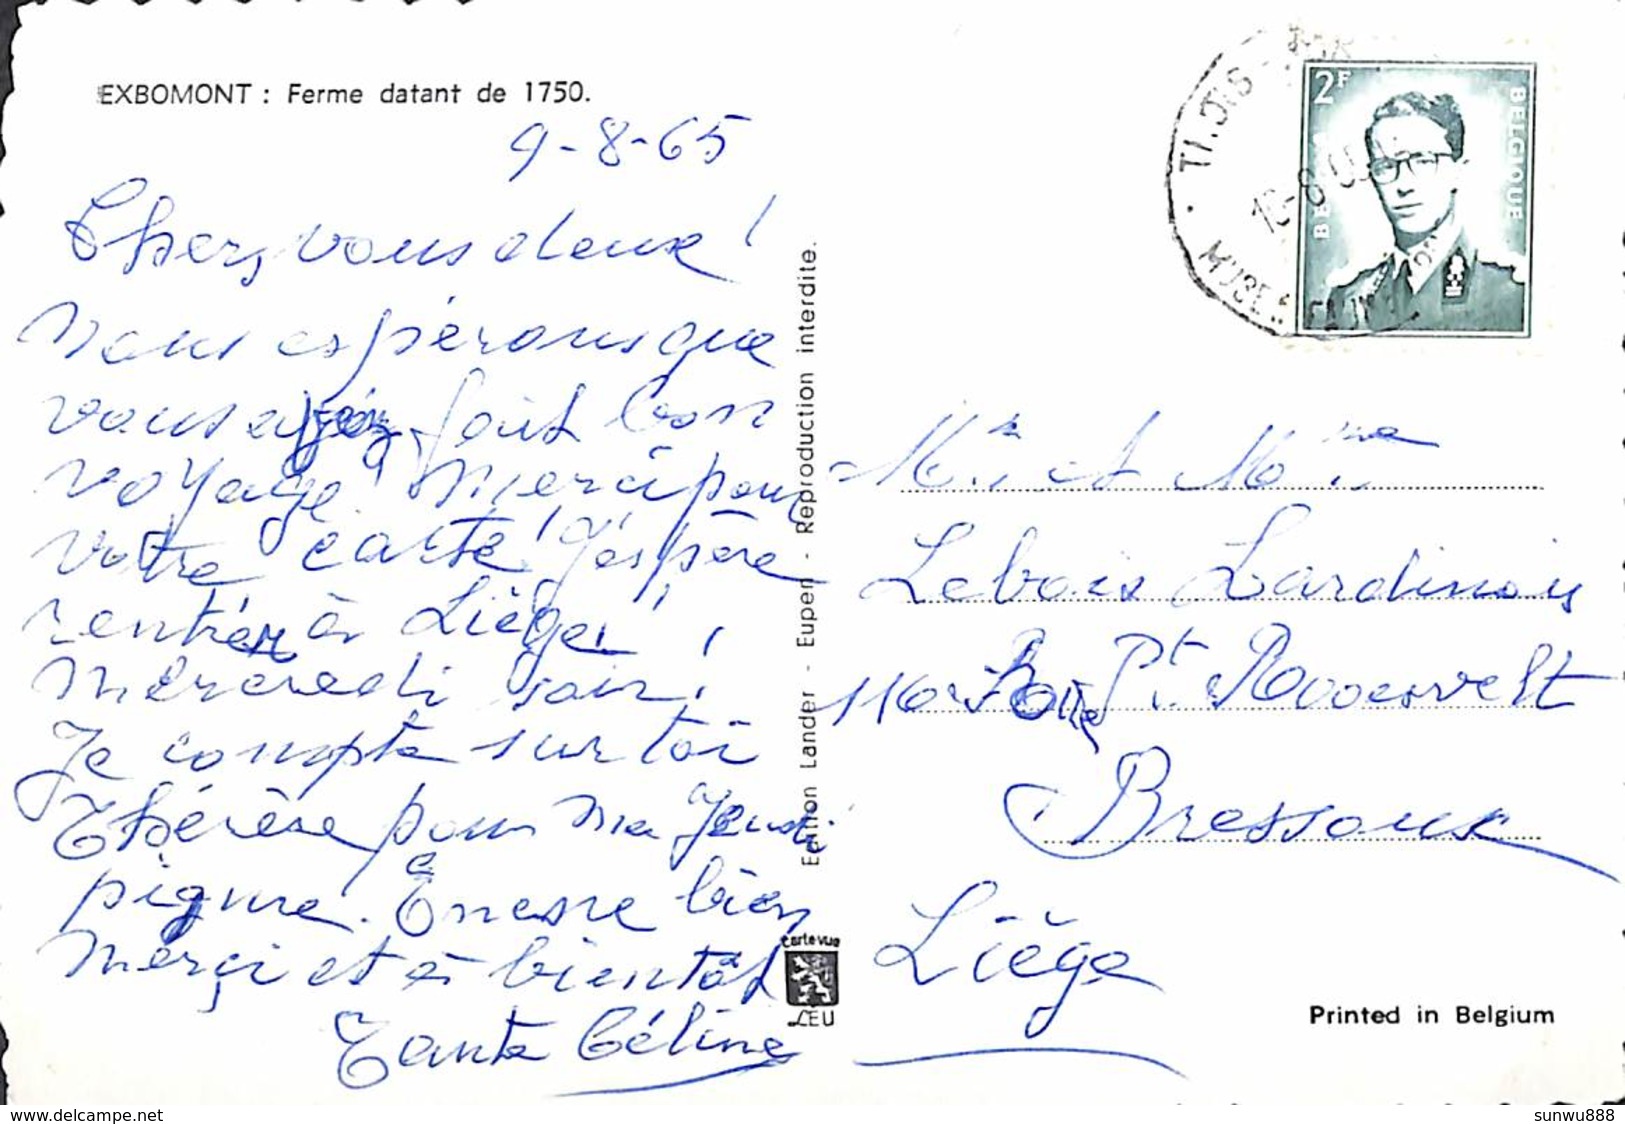 EXBOMONT : Ferme datant de 1750.
9-8-65
Chers vous deux !
Nous espérons que
vous ayez fait bon
voyage merci pour
votre carte ! J'espère
rentrer à Liège !
mercredi soir !
Je compte sur toi
Thérèse pour ma Jeudi
piqure. Encore bien
merçi et à bientôt
Tante Céline
Edition Lander - Eupen - Reproduction interdite.
Carte vue
LEU
2F
BELGIQUE
Mr et Mme
Lebois Lardinois
110 Pt Roosevelt
Bressoux
Liège
Printed in Belgium
www.delcampe.net
sunwu888